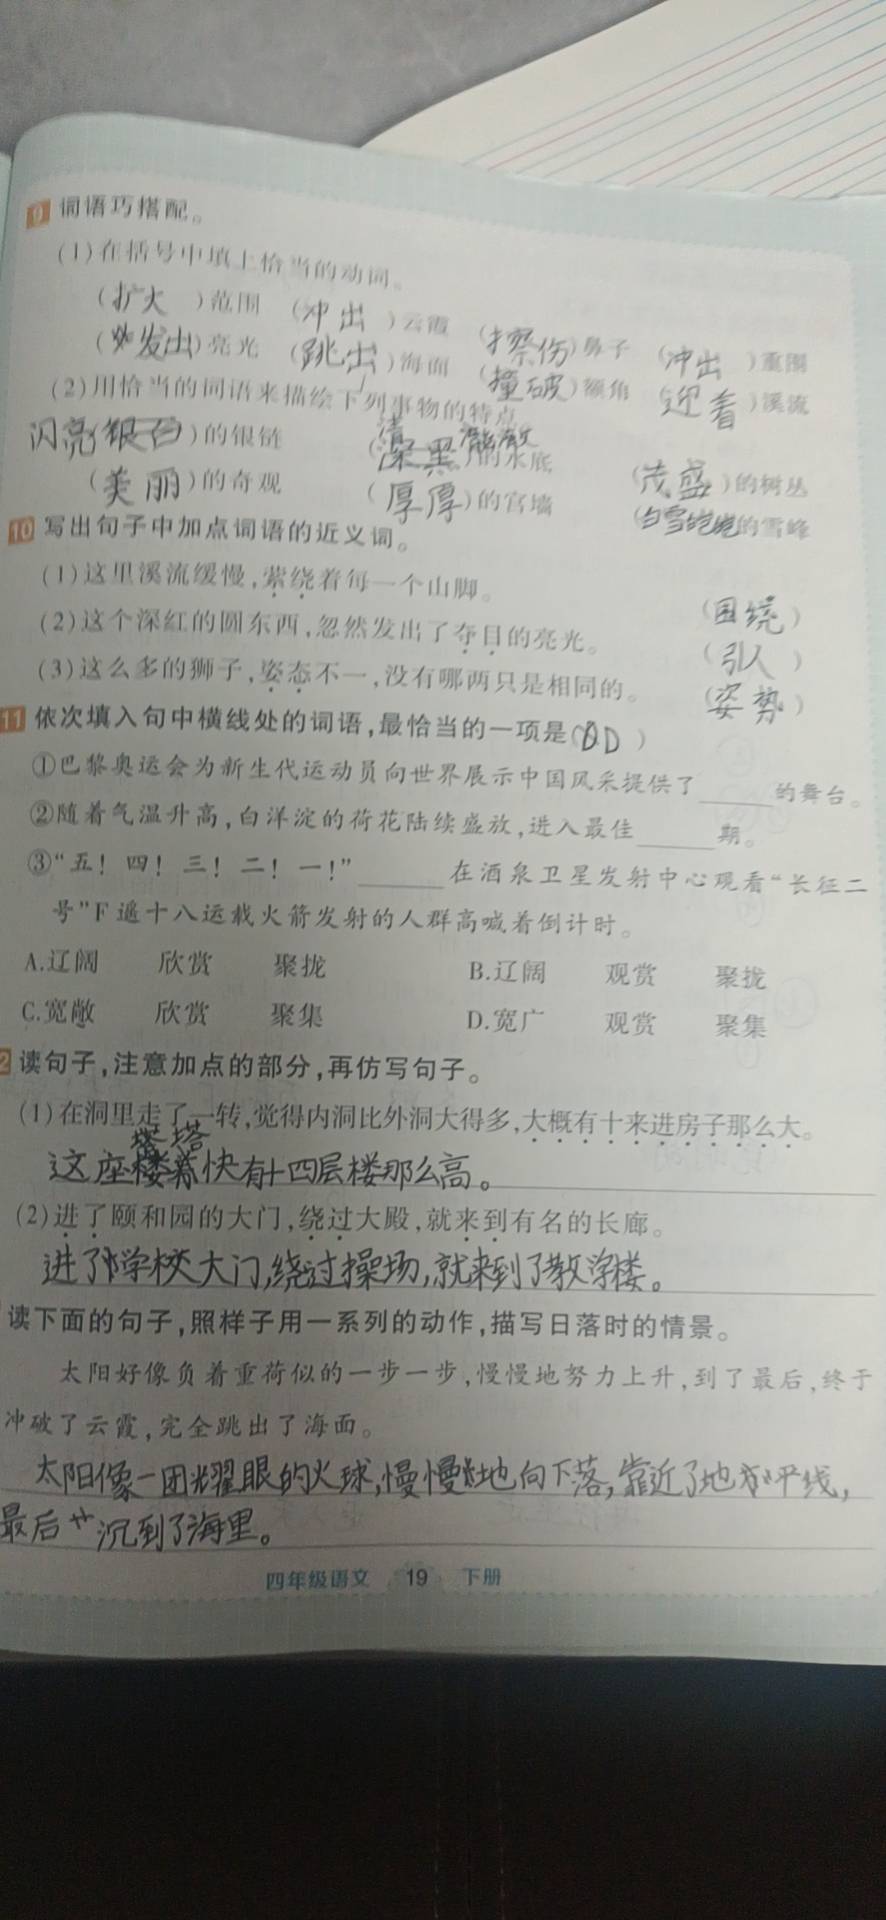 9 词语巧搭配。
(1)在括号中填上恰当的动词。
(扩大)范围 (冲出)云霞 (擦伤)鼻子 (冲出)重围
(发出)亮光 (跳出)海面 (撞破)额角 (迎着)溪流
(2)用恰当的词语来描绘下列事物的特点
闪亮(银白)的银链 (清澈)的水底 (茂盛)的树丛
(美丽)的奇观 (厚厚)的宫墙 (白雪皑皑)的雪峰
10 写出句子中加点词语的近义词。
(1)这里溪流缓慢,萦绕着每一个山脚。 (围绕)
(2)这个深红的圆东西,忽然发出了夺目的亮光。 (引人)
(3)这么多的狮子,姿态不一,没有哪两只是相同的。 (姿势)
11 依次填入句中横线处的词语,最恰当的一项是( D )
①巴黎奥运会为新生代运动员向世界展示中国风采提供了______的舞台。
②随着气温升高,白洋淀的荷花陆续盛放,进入最佳______期。
③“五!四!三!二!一!”______在酒泉卫星发射中心观看“长征二
号”F遥十八运载火箭发射的人群高喊着倒计时。
A.辽阔 欣赏 聚拢 B.辽阔 观赏 聚拢
C.宽敞 欣赏 聚集 D.宽广 观赏 聚集
2 读句子,注意加点的部分,再仿写句子。
(1)在洞里走了一转,觉得内洞比外洞大得多,大概有十来进房子那么大。
这座塔快有十四层楼那么高。
(2)进了颐和园的大门,绕过大殿,就来到有名的长廊。
进了学校大门,绕过操场,就来到了教学楼。
读下面的句子,照样子用一系列的动作,描写日落时的情景。
太阳好像负着重荷似的一步一步,慢慢地努力上升,到了最后,终于
冲破了云霞,完全跳出了海面。
太阳像一团耀眼的火球,慢慢地向下落,靠近了地平线,
最后沉到了海里。
四年级语文 19 下册